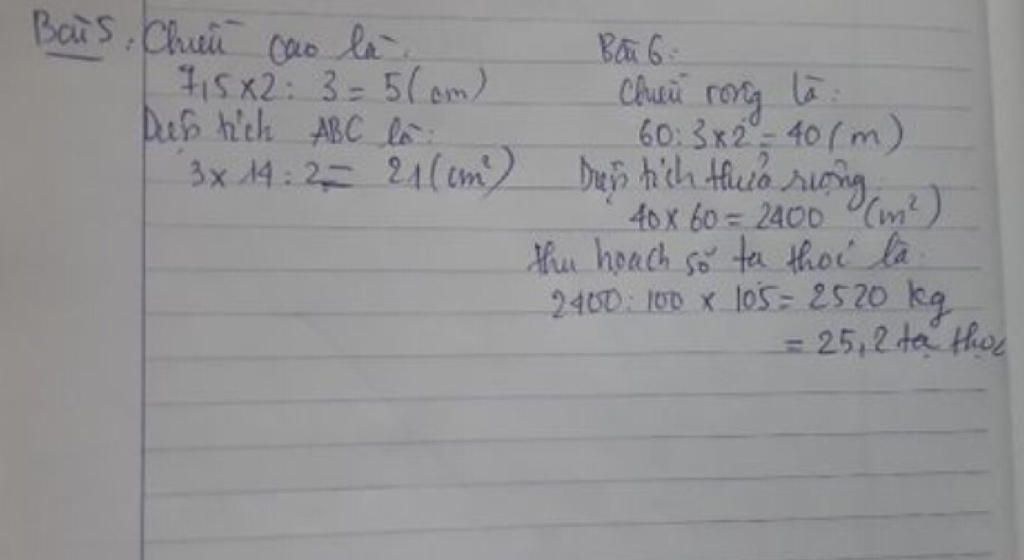 Bài 5: Chiều cao là:
7,5 x 2 : 3 = 5 (cm)
Diện tích ABC là:
3 x 14 : 2 = 21 (cm²)
Bài 6:
Chiều rộng là:
60 : 3 x 2 = 40 (m)
Diện tích thửa ruộng:
40 x 60 = 2400 (m²)
thu hoạch số tạ thóc là:
2400 : 100 x 105 = 2520 kg
= 25,2 tạ thóc